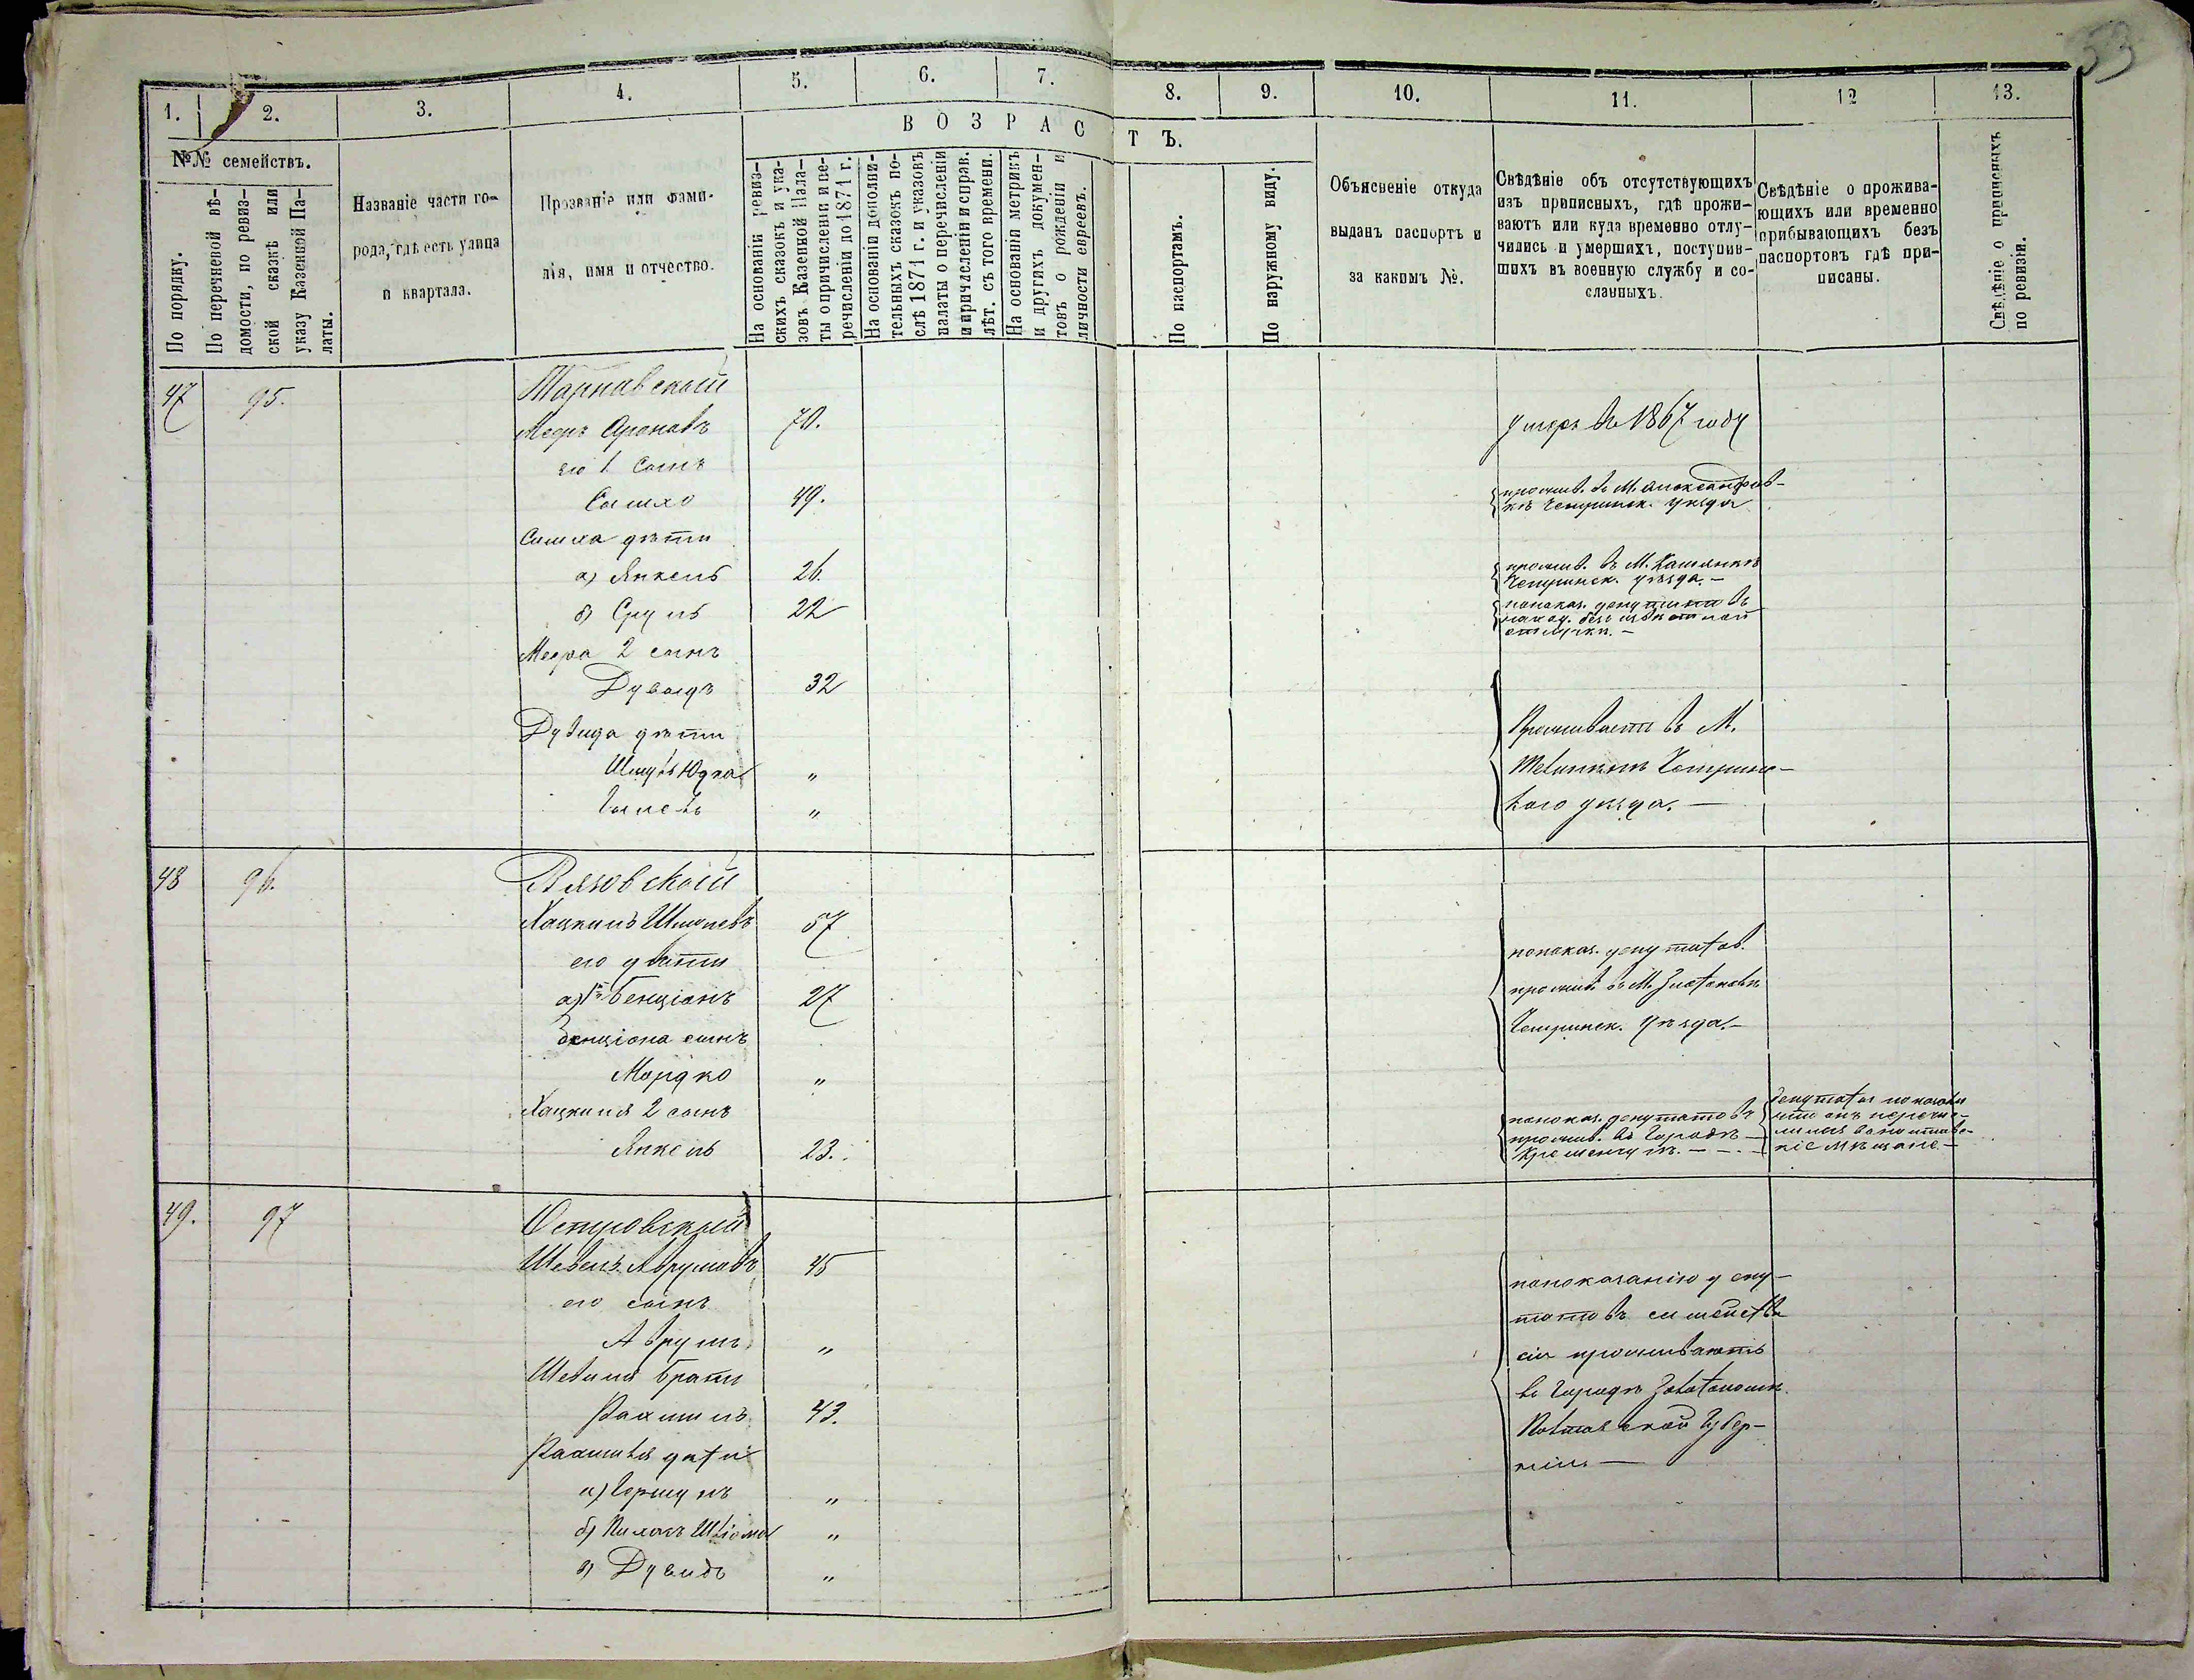 53
1.
2.
3.
4.
5.
6.
7.
8.
9.
10.
11.
12
13.
В О З Р А С Т Ъ.
№№ семействъ.
По порядку.
По перечневой вѣ-
домости, по ревиз-
ской сказкѣ или
указу Казенной Па-
латы.
Названіе части го-
рода, гдѣ есть улица
и квартала.
Прозваніе или фами-
лія, имя и отчество.
На основаніи ревиз-
скихъ сказокъ и ука-
зовъ Казенной Пала-
ты о причисленіи и пе-
речисленіи до 1871 г.
На основаніи дополни-
тельныхъ сказокъ по-
слѣ 1871 г. и указовъ
палаты о перечисленіи
и причисленіи и справ.
лѣт. съ того времени.
На основаніи метрикъ
и другихъ докумен-
товъ о рожденіи и
личности евреевъ.
По паспортамъ.
По наружному виду.
Объясненіе откуда
выданъ паспортъ и
за какимъ №.
Свѣдѣніе объ отсутствующихъ
изъ приписныхъ, гдѣ прожи-
ваютъ или куда временно отлу-
чились и умершихъ, поступив-
шихъ въ военную службу и со-
сланныхъ.
Свѣдѣніе о прожива-
ющихъ или временно
прибывающихъ безъ
паспортовъ гдѣ при-
писаны.
Свѣдѣніе о приписныхъ
по ревизіи.
47 95. Тарнавскій
Меръ Ароновъ 70. умеръ въ 1867 году
его 1 сынъ
Симхо 49. прожив. въ М. Александров-
кѣ Чигринск. уѣзда
Симха дѣти
а) Янкель 26. прожив. въ М. Каменкѣ
Чигринск. уѣзда. —
б) Сруль 22 показ. депутатовъ
отлучкѣ. —
Меера 2 сынъ
Дувидъ 32
Дувида дѣти Проживаетъ въ М.
Шмуль Юдка " Телипинѣ Чигринс-
" каго уѣзда. —
48 96. Вязовскій
Хацкиль Шмулевъ 57
его дѣти показ. депутатов.
а) 1й Бенціонъ 27 прожив. въ М. Златополѣ
Бенціона сынъ Чигринск. Уѣзда. —
Мордко "
Хацкиля 2 сынъ
Янкель 23. показ. депутатовъ
прожив. въ Городѣ
Кременчугѣ. —
Депутаты показали
что онъ перечис-
ніе мѣщане —
49. 97 Островскій
Шевель Аврумовъ 45 по показанію депу-
его сынъ татовъ семейства
Аврумъ " сіи проживаютъ
Шевеля братъ въ Городѣ Золотоноши
Рахмиль 43. Полтавской Губер-
Рахмиля дѣти ніи. —
а) Гершунъ "
б) Шліома "
в) Дувидъ "